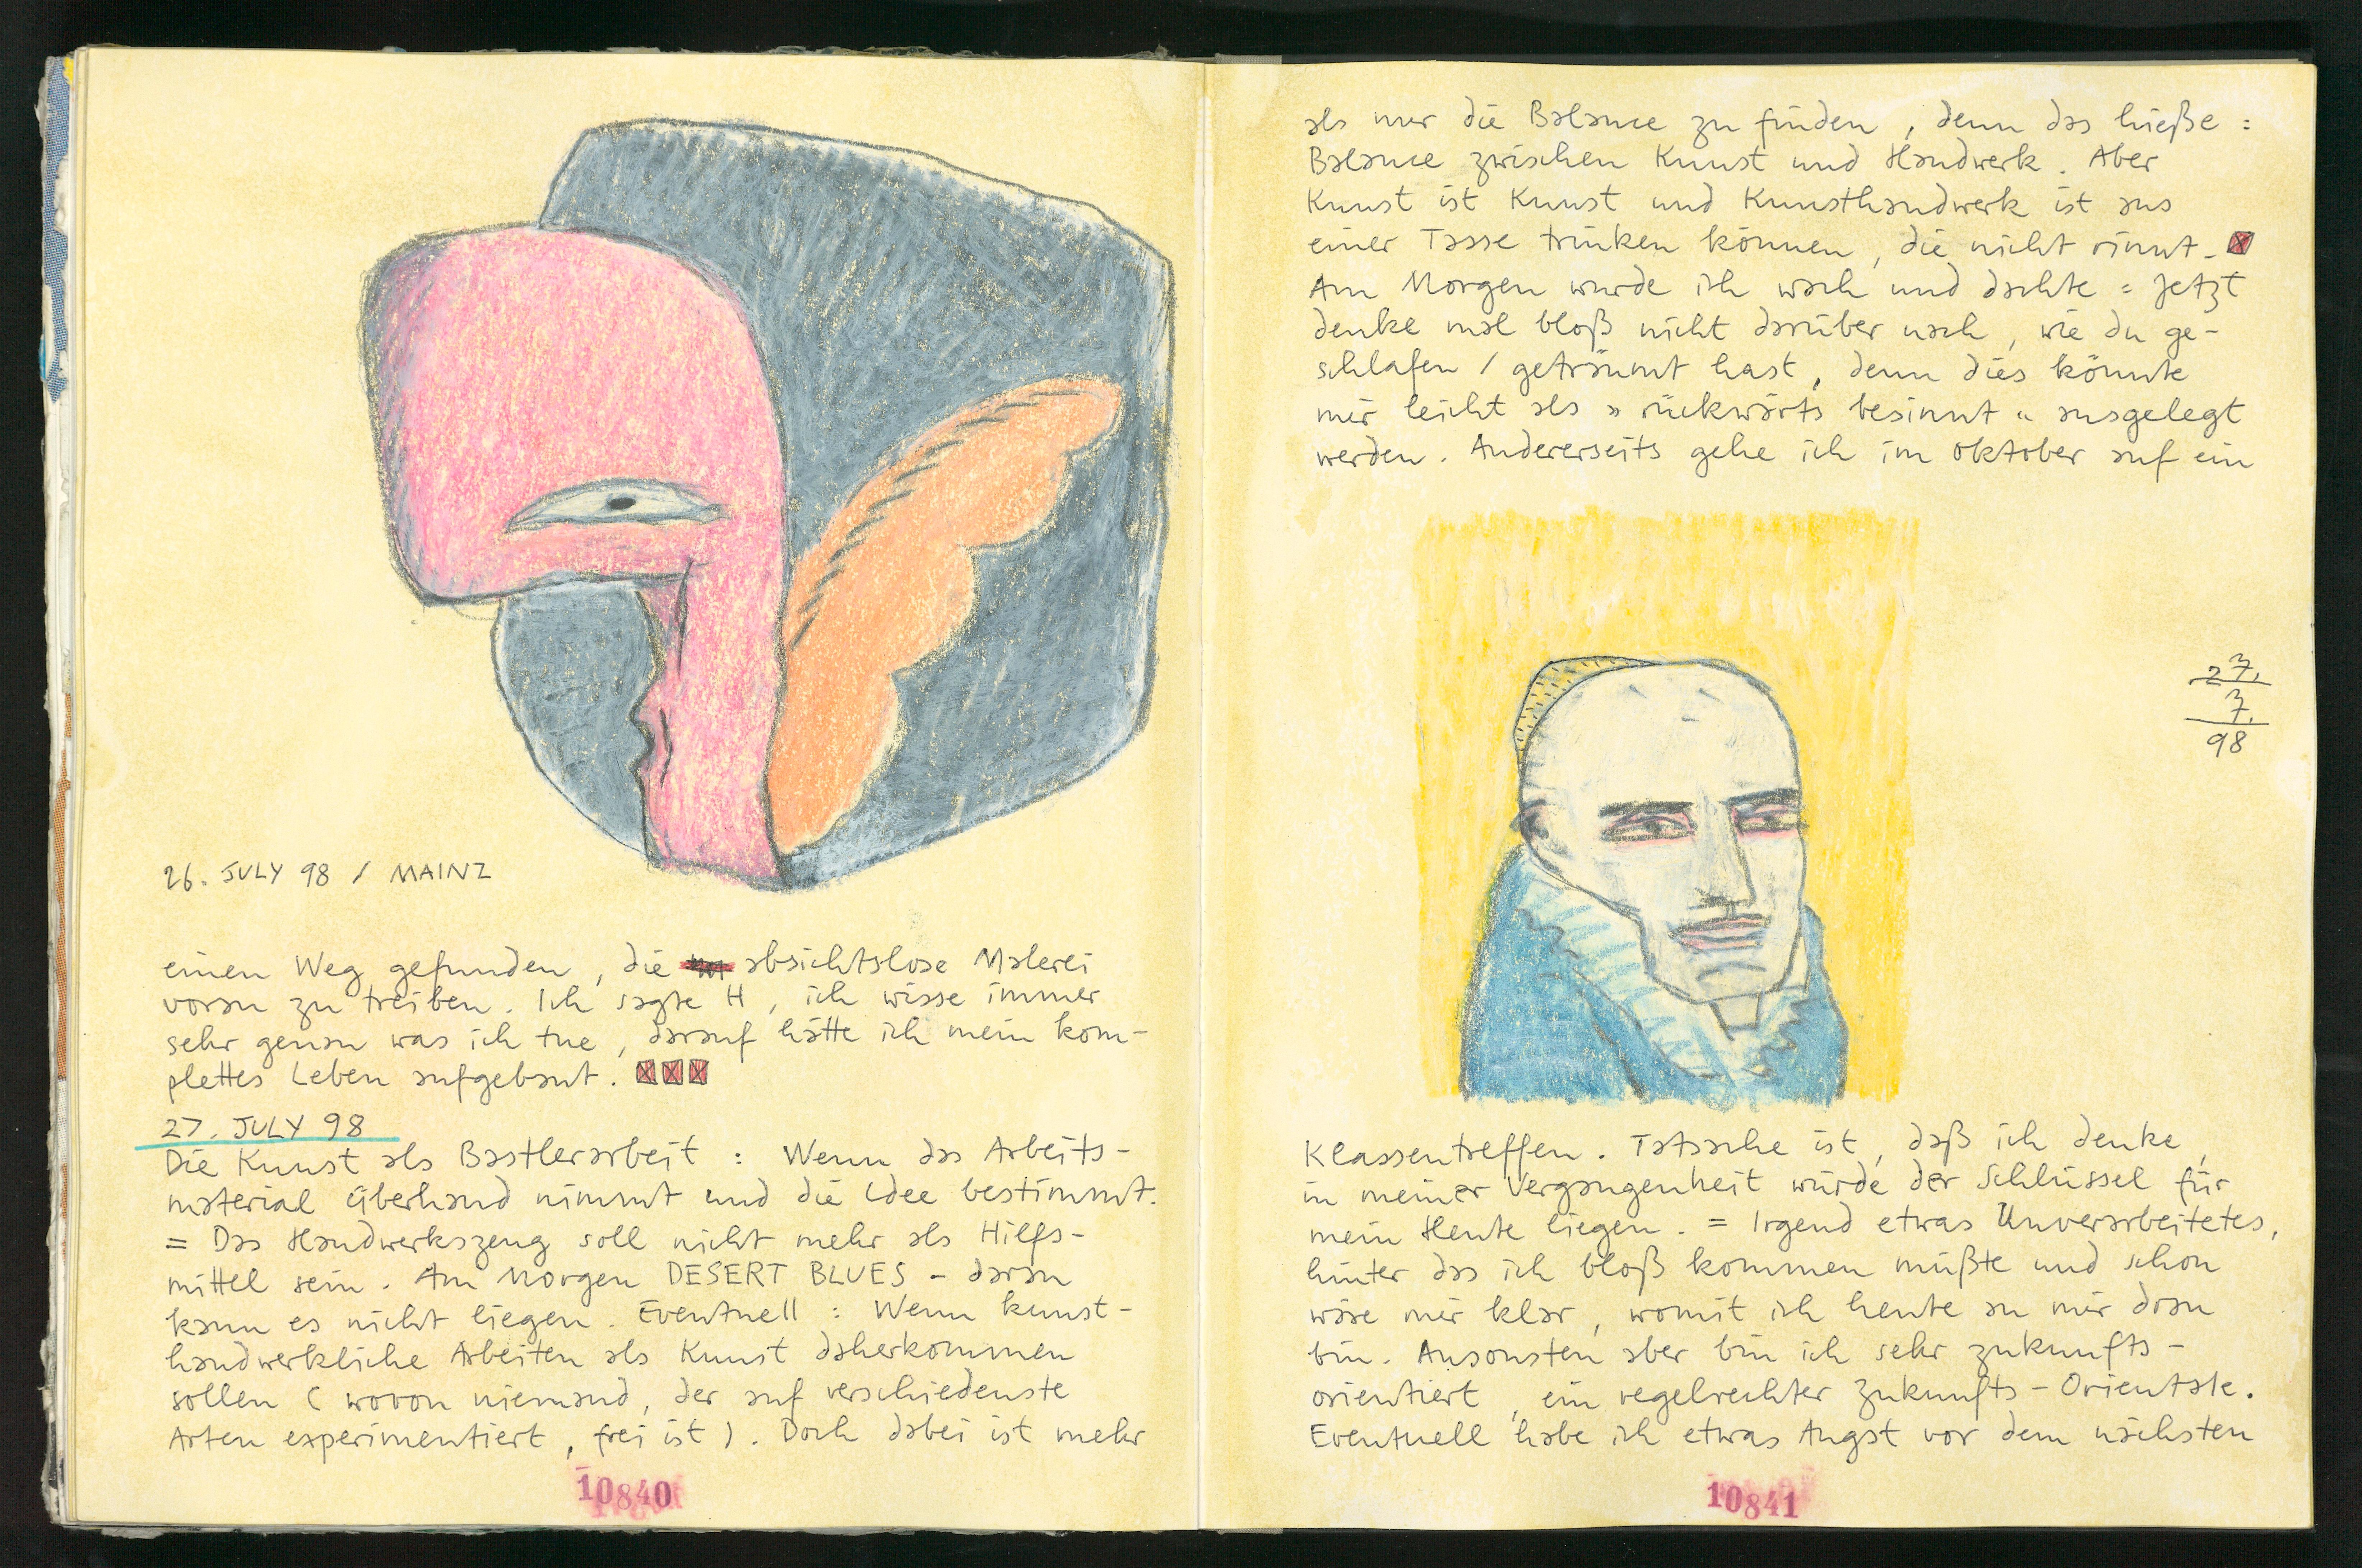 26. JULY 98 / MAINZ
einen Weg gefunden, die absichtslose Malerei
voran zu treiben. Ich sagte H, ich wisse immer
sehr genau was ich tue, darauf hätte ich mein kom-
plettes Leben aufgebaut.
27. JULY 98
Die Kunst als Bastlerarbeit : Wenn das Arbeits-
material überhand nimmt und die Idee bestimmt.
= Das Handwerkszeug soll nicht mehr als Hilfs-
mittel sein. Am Morgen DESERT BLUES - daran
kann es nicht liegen. Eventuell : Wenn kunst-
handwerkliche Arbeiten als Kunst daherkommen
sollen ( wovon niemand, der auf verschiedenste
Arten experimentiert, frei ist ). Doch dabei ist mehr
10840
als nur die Balance zu finden, denn das hieße :
Balance zwischen Kunst und Handwerk. Aber
Kunst ist Kunst und Kunsthandwerk ist aus
einer Tasse trinken können, die nicht rinnt.
Am Morgen wurde ich wach und dachte : Jetzt
denke mal bloß nicht darüber nach, wie du ge-
schlafen / geträumt hast, denn dies könnte
mir leicht als » rückwärts besinnt « ausgelegt
werden. Andererseits gehe ich im Oktober auf ein
27.
7.
98
Klassentreffen. Tatsache ist, daß ich denke,
in meiner Vergangenheit würde der Schlüssel für
mein Heute liegen. = Irgend etwas Unverarbeitetes,
hinter das ich bloß kommen müßte und schon
wäre mir klar, womit ich heute an mir dran
bin. Ansonsten aber bin ich sehr zukunfts-
orientiert, ein regelrechter Zukunfts-Orientale.
Eventuell habe ich etwas Angst vor dem nächsten
10841